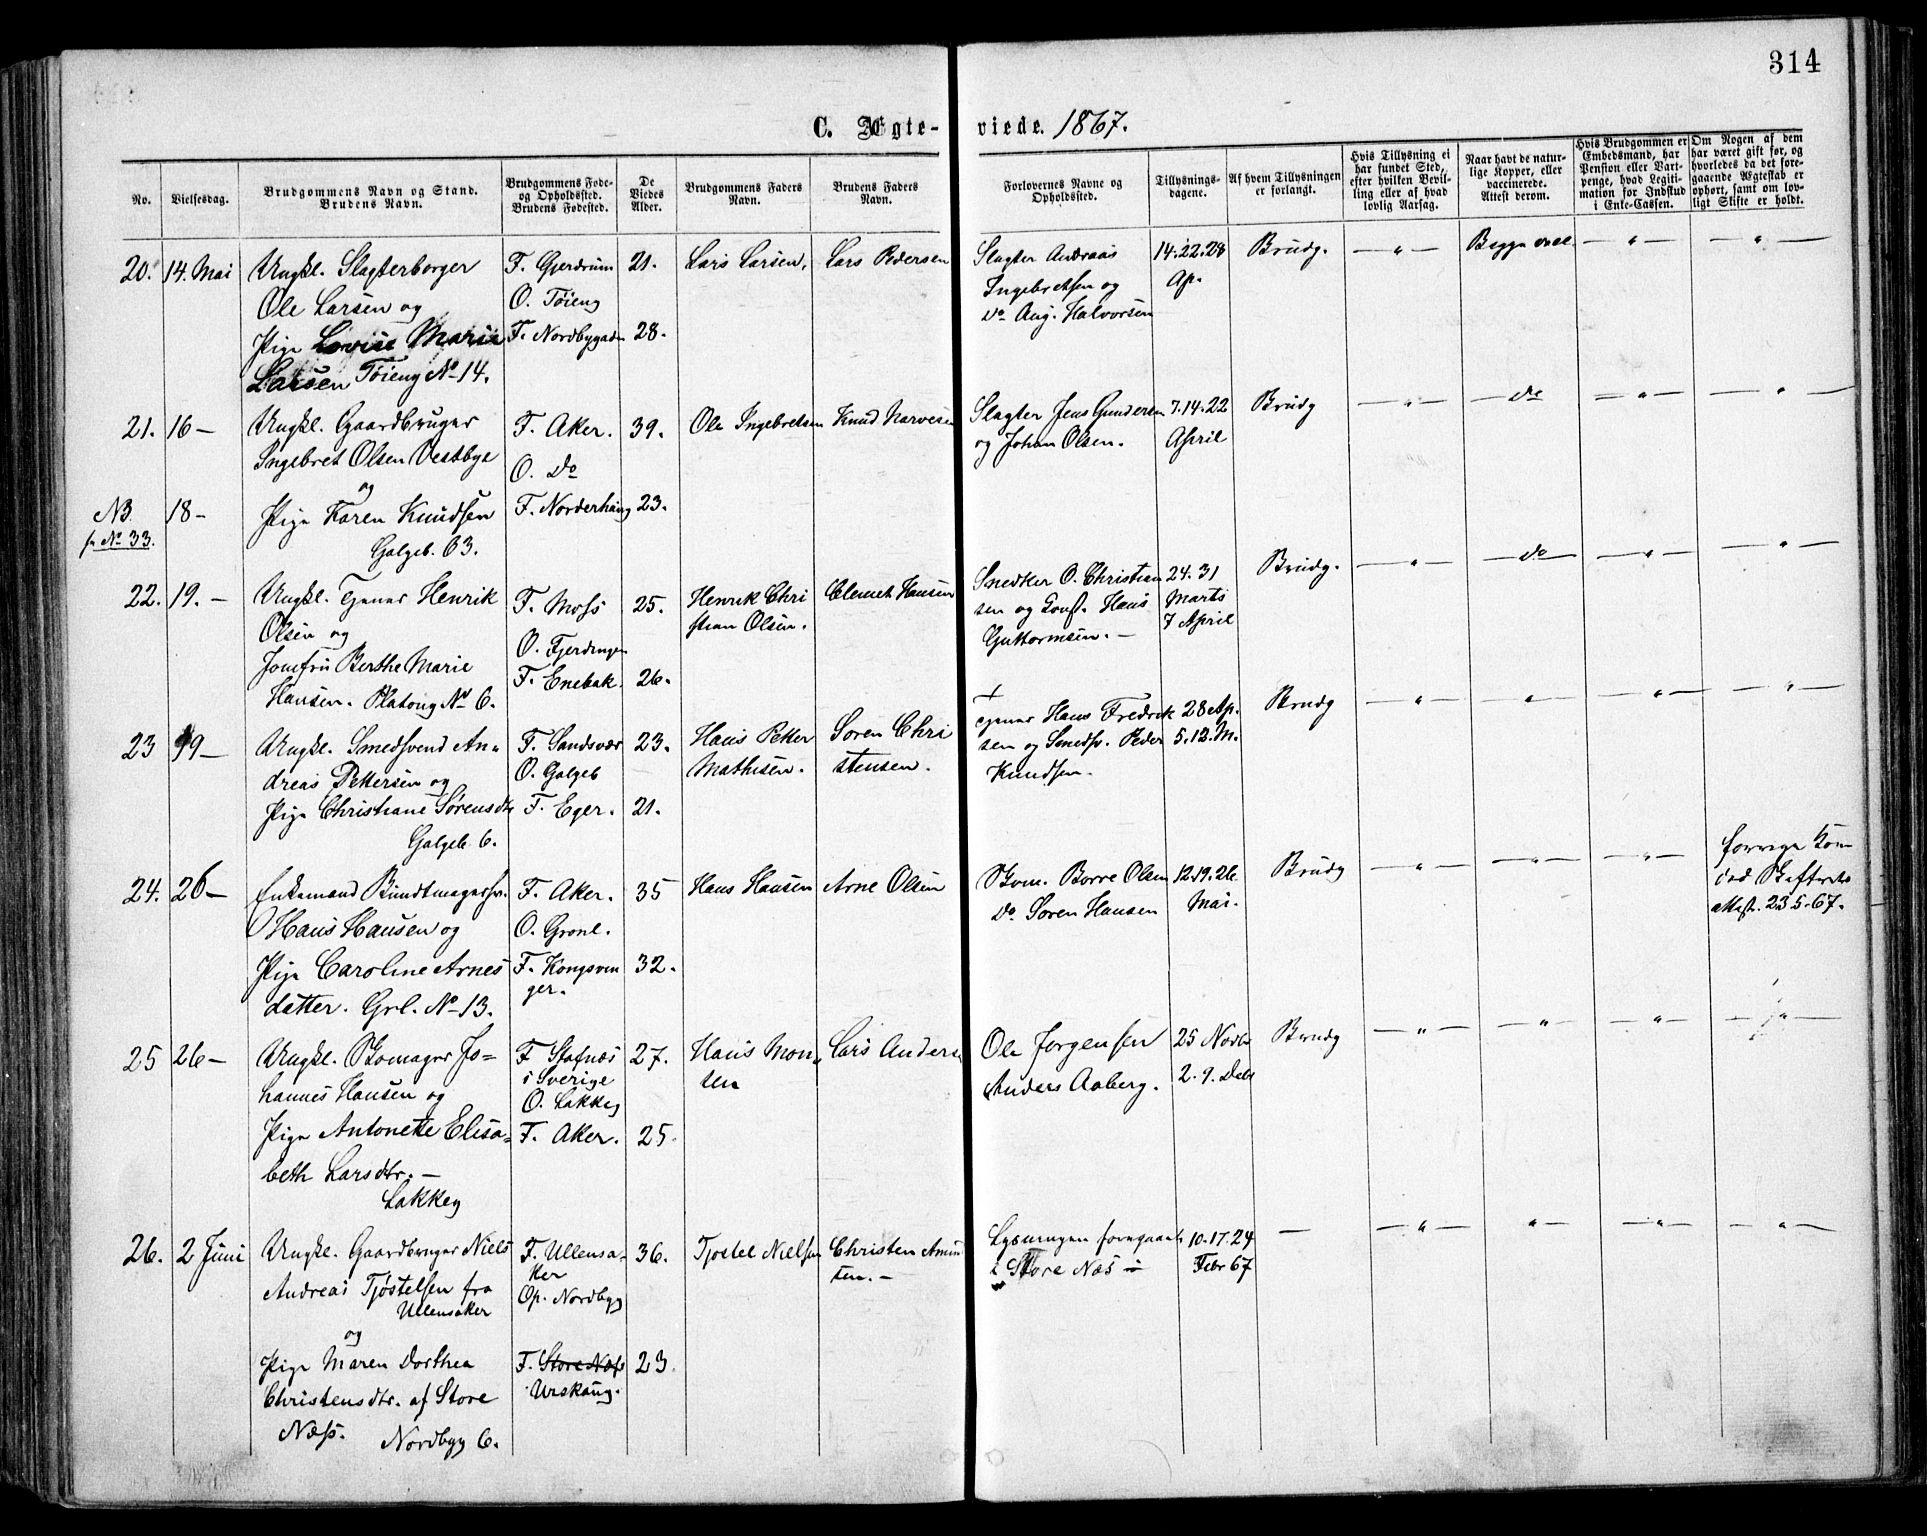 314
C. Ægte-
viede. 1867.
No.
Vielsesdag.
Brudgommens Navn og Stand.
Brudens Navn.
Brudgommens Føde-
og Opholdssted.
Brudens Fødested.
De
Viedes
Alder.
Brudgommens Faders
Navn.
Brudens Faders
Navn.
Forlovernes Navne og
Opholdssted.
Tillysnings-
dagene.
Af hvem Tillysningen
er forlangt.
Hvis Tillysning ei
har fundet Sted,
efter hvilken Bevil-
ling eller af hvad
lovlig Aarsag.
Naar havt de natur-
lige Kopper, eller
vaccinerede.
Attest derom.
Hvis Brudgommen er
Embedsmand, har
Pension eller Vart-
penge, hvad Legiti-
mation for Indskud
i Enke-Cassen.
Om Nogen af dem
har været gift før, og
hvorledes da det fore-
gaaende Ægteskab er
ophørt, samt om lov-
ligt Skifte er holdt.
20. 14. Mai
Ungkl. Slagterborger
Ole Larsen og
Pige Lovise Marie
Larsen Töieng No 14.
F. Gjerdrum
O. Töieng
F. Nordbygaden
21.
28.
Lars Larsen.
Lars Pedersen
Slagter Andreas
Ingebretsen og
Do Aug. Halvorsen
14. 22. 28
Ap.
Brudg.
— " —
Begge vacc.
— " —
— " —
21. 16 —
Ungkl. Gaardbruger
Ingebret Olsen Vestbye
og
Pige Karen Knudsen
Galgeb. 63.
F. Aker.
O. Do
F. Norderhaug
39.
23.
Ole Ingebretsen
Knud Narvesen
Slagter Jens Gundersen
og Johan Olsen.
7. 14. 22
April
Brudg
— " —
— do —
— " —
— " —
NB. 18 —
fr No 33.
22. 19. —
Ungkl. Henrik
Olsen og
Jomfru Berthe Marie
Hansen. Platoug No 6.
F. Moss
O. Fjerdingen
F. Enebak.
25.
26.
Henrik Chri
stian Olsen.
Clemet Hansen
Snedker O. Christian
sen og Hans
Guttormsen. —
24. 31
Marts
7 April
Brudg.
— " —
— do —
— " —
— " —
23 19 —
Ungkl. Smedsvend An-
dreas Pettersen og
Pige Christiane Sørensdtr
Galgeb. 6.
F. Sandsvær
O. Galgeb
F. Eger.
23.
21.
Hans Petter
Mathisen.
Soren Chri
stensen.
Hans Fredrik
sen og Smedsv. Peder
Knudsen.
28 Ap.
5. 12. M.
Brudg
— " —
— " —
— " —
— " —
24. 26 —
Enkemand Bundtmagersv.
Hans Hansen og
Pige Caroline Arnes
datter. Grl. No 13.
F. Aker.
O. Gronl.
F. Kongsvin
ger.
35
32.
Hans Hansen
Arne Olsen
Borre Olsen
Do. Soren Hansen
12. 19. 26.
Mai.
Brudg
— " —
— " —
— " —
forrige Kone
död Skifteretts
attest. 23 5 - 67.
25 26 —
Ungkl. Skomager Jo=
hannes Hansen og
Pige Antonette Elisa=
beth Larsdtr. —
Lakkeg
F Stafnæs
i Sverige
O. Lakkeg
F. Aker.
27.
25.
Hans Mon-
sen
Lars Andersen
Ole Jorgensen
Anders Aaberg.
25 Novbr
2. 9. Debr
Brudg
— " —
— " —
— " —
— " —
26. 2 Juni
Ungkl. Gaardbruger Niels
Andreas Tjöstelsen fra
Ullensaker
og
Pige Maren Dorthea
Christensdtr. af Store
Næss.
Nordbyg 6.
F. Ullensa-
ker
Op. Nordbyg
F. Store Næs
Urskoug.
36.
23.
Tjostel Nielsen
Christen Amun
sen. —
Lysningen foregaaet
i Store Næs
10. 17. 24
Febr 67
—
— " —
— " —
— " —
— " —